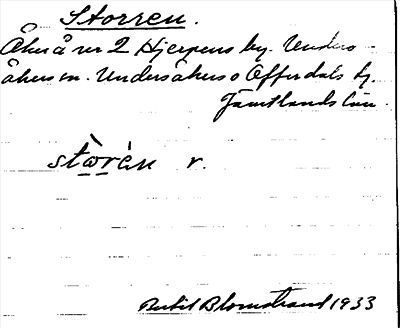 Storren.
Åker å nr 2 Hjerpens by. Unders-
åkers sn. Undersåkers o Offerdals tg.
Jämtlands län.
stòrèn v.
Bertil Blomstrand 1933